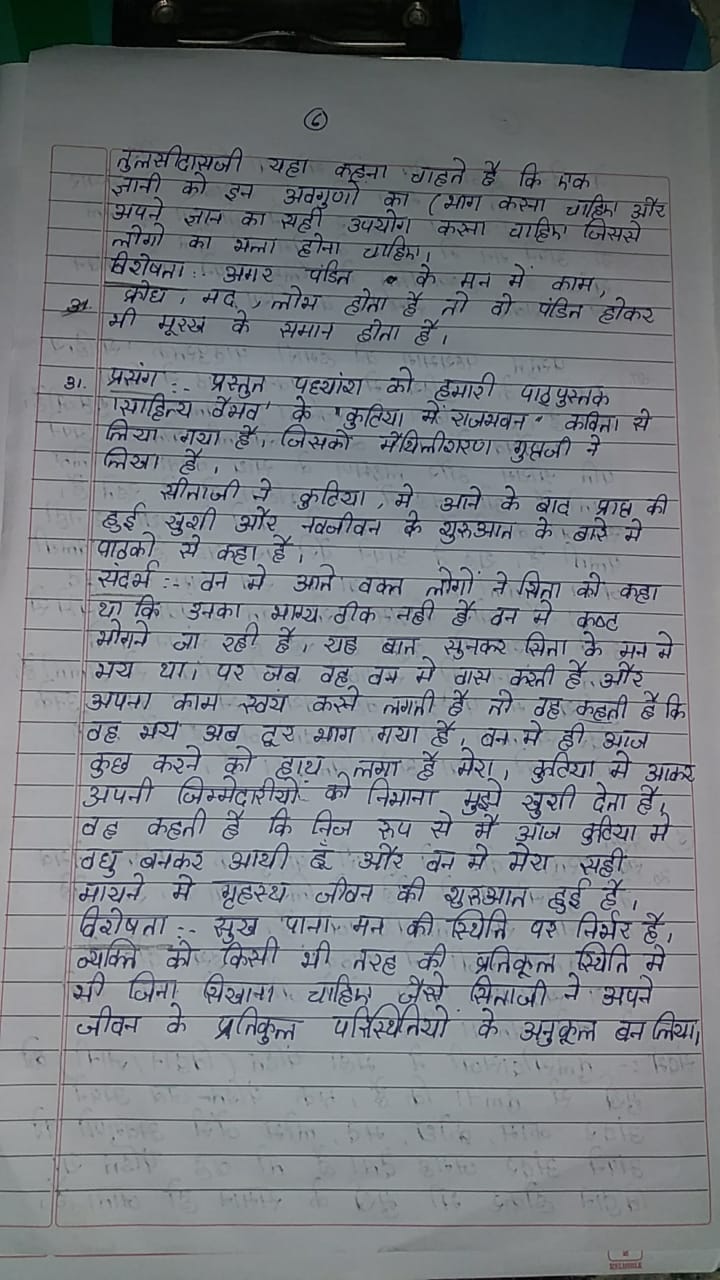 6
तुलसीदासजी यहा कहना चाहते है कि एक
ज्ञानी को इन अवगुणो का त्याग करना चाहिए और
अपने ज्ञान का सही उपयोग करना चाहिए जिससे
लोगो का भला होना चाहिए।
विशेषता :- अगर पंडित के मन में काम,
क्रोध, मद, लोभ होता है तो वो पंडित होकर
भी मूरख के समान होता है।
31. प्रसंग :- प्रस्तुत पध्यांश को हमारी पाठ्पुस्तक
'साहित्य वैभव' के "कुटिया में राजभवन" कविता से
लिया गया है, जिसको मैथिलीशरण गुप्तजी ने
लिखा है।
सीताजी ने कुटिया में आने के बाद प्राप्त की
हुई खुशी और नवजीवन के शुरुआत के बारे मे
पाठको से कहा है।
संदर्भ :- वन मे आते वक्त लोगों ने सिता को कहा
था कि उनका भाग्य ठीक नही है वन मे कष्ट
भोगने जा रही है, यह बात सुनकर सिता के मन मे
भय था। पर जब वह वन मे वास करती है और
अपना काम स्वयं करने लगती है तो वह कहती है कि
वह भय अब दूर भाग गया है, वन मे ही आज
कुछ करने को हाथ लगा है मेरा, कुटिया मे आकर
अपनी जिम्मेदारीयों को निभाना मुझे खुशी देता है,
वह कहती है कि निज रूप से मै आज कुटिया मे
वधु बनकर आयी हूँ और वन मे मेरा सही
मायने मे गृहस्थ जीवन की शुरुआत हुई है,
विशेषता :- सुख पाना मन की स्थिति पर निर्भर है,
व्यक्ति को किसी भी तरह की प्रतिकूल स्थिति मे
भी जिना सिखाना चाहिए जैसे सिताजी ने अपने
जीवन के प्रतिकुल परिस्थितियो के अनुकूल बन लिया,
RELIABLE